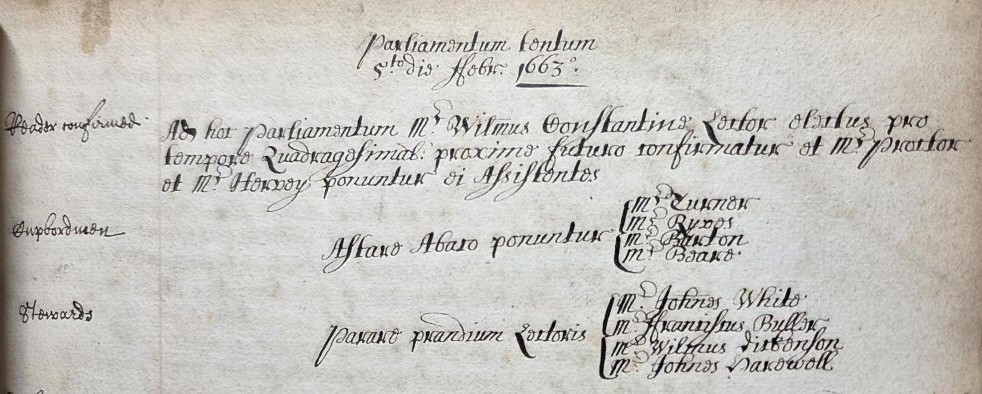 Parliamentum tentum
5to die Ffebr. 1663o.
Reader confirmed.
Ad hoc Parliamentum Mr Wilmus Constantine Lector electus pro
tempore Quadragesimal: proxime futuro confirmatur et Mr Proctor
et Mr Hervey ponuntur ei Assistentes
Cupbordmen
Astare Abaco ponuntur
Mr Turner
Mr Ryves
Mr Barton
Mr Beare
Stewards
Parare prandium Lectoris
Mr Johnes White
Mr Ffranciscus Buller
Mr Wilmus Dickenson
Mr Johnes Harewell